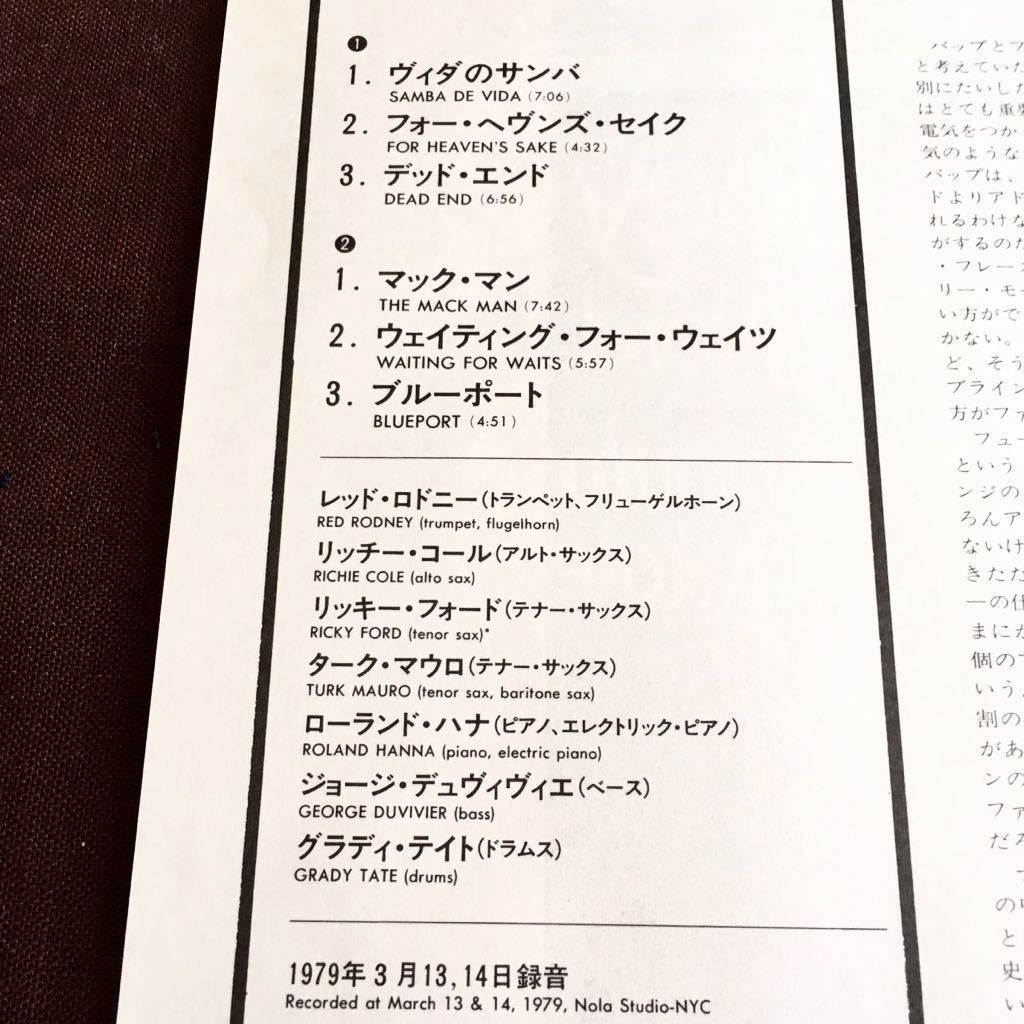 ❶
1. ヴィダのサンバ
SAMBA DE VIDA (7:06)
2. フォー・ヘヴンズ・セイク
FOR HEAVEN'S SAKE (4:32)
3. デッド・エンド
DEAD END (6:56)
❷
1. マック・マン
THE MACK MAN (7:42)
2. ウェイティング・フォー・ウェイツ
WAITING FOR WAITS (5:57)
3. ブルーポート
BLUEPORT (4:51)
レッド・ロドニー(トランペット、フリューゲルホーン)
RED RODNEY (trumpet, flugelhorn)
リッチー・コール(アルト・サックス)
RICHIE COLE (alto sax)
リッキー・フォード(テナー・サックス)
RICKY FORD (tenor sax)*
ターク・マウロ(テナー・サックス)
TURK MAURO (tenor sax, baritone sax)
ローランド・ハナ(ピアノ、エレクトリック・ピアノ)
ROLAND HANNA (piano, electric piano)
ジョージ・デュヴィヴィエ(ベース)
GEORGE DUVIVIER (bass)
グラディ・テイト(ドラムス)
GRADY TATE (drums)
1979年3月13,14日録音
Recorded at March 13 & 14, 1979, Nola Studio-NYC
バップとフ
と考えていた
別にたいした
はとても重要
電気をつか
気のような
バップは、
ドよりアド
れるわけな
がするのだ
・フレーズ
リー・モー
い方がで
かない。
ど、そう
ブライン
方がファ
フュー
という
ンジの
ろんア
ないけ
きただ
一の仕
まにか
個の
いう
割の
があ
ンの
ファ
だろ
の
と
史
い